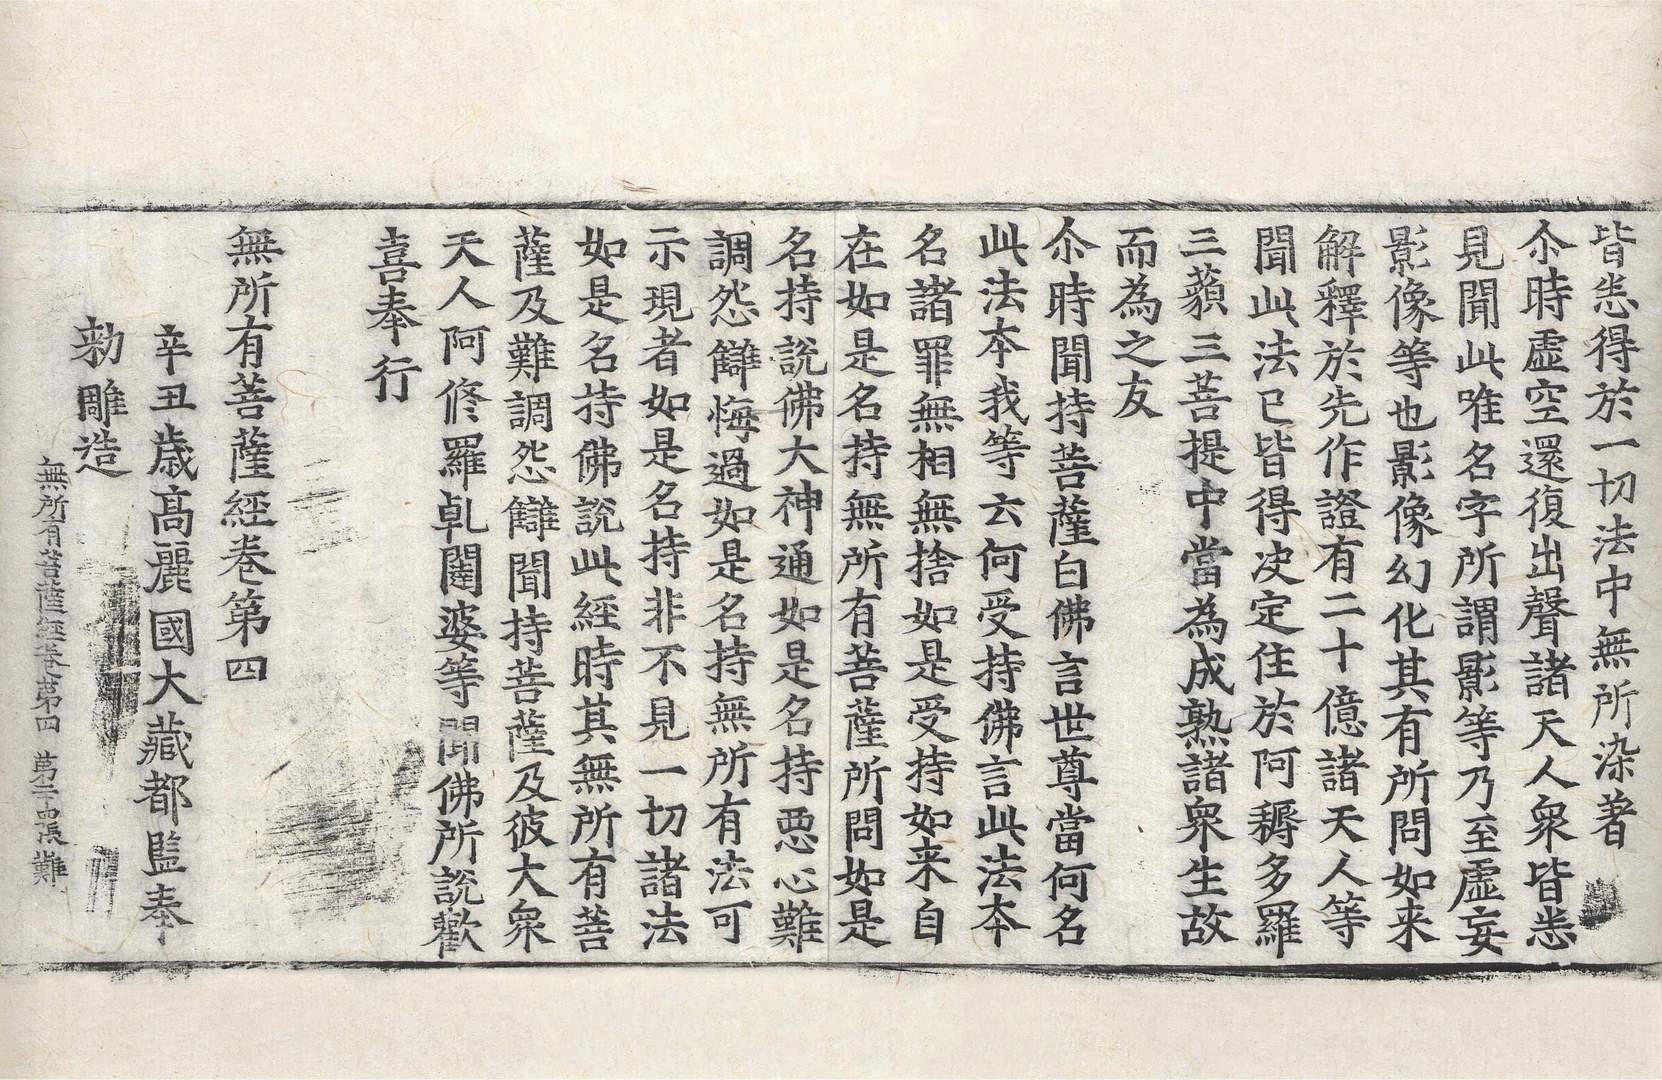 皆悉得於一切法中無所染著
尒時虛空還復出聲諸天人衆皆悉
見聞此唯名字所謂影等乃至虛妄
影像等也影像幻化其有所問如来
解釋於先作證有二十億諸天人等
聞此法已皆得決定住於阿耨多羅
三藐三菩提中當為成熟諸衆生故
而為之友
尒時聞持菩薩白佛言世尊當何名
此法本我等云何受持佛言此法本
名諸罪無相無捨如是受持如来自
在如是名持無所有菩薩所問如是
名持說佛大神通如是名持惡心難
調怨讎悔過如是名持無所有法可
示現者如是名持非不見一切諸法
如是名持佛說此經時其無所有菩
薩及難調怨讎聞持菩薩及彼大衆
天人阿脩羅乹闥婆等聞佛所說歡
喜奉行
無所有菩薩經卷第四
辛丑歲高麗國大藏都監奉
勅雕造
無所有菩薩經卷第四 第二十四張 難